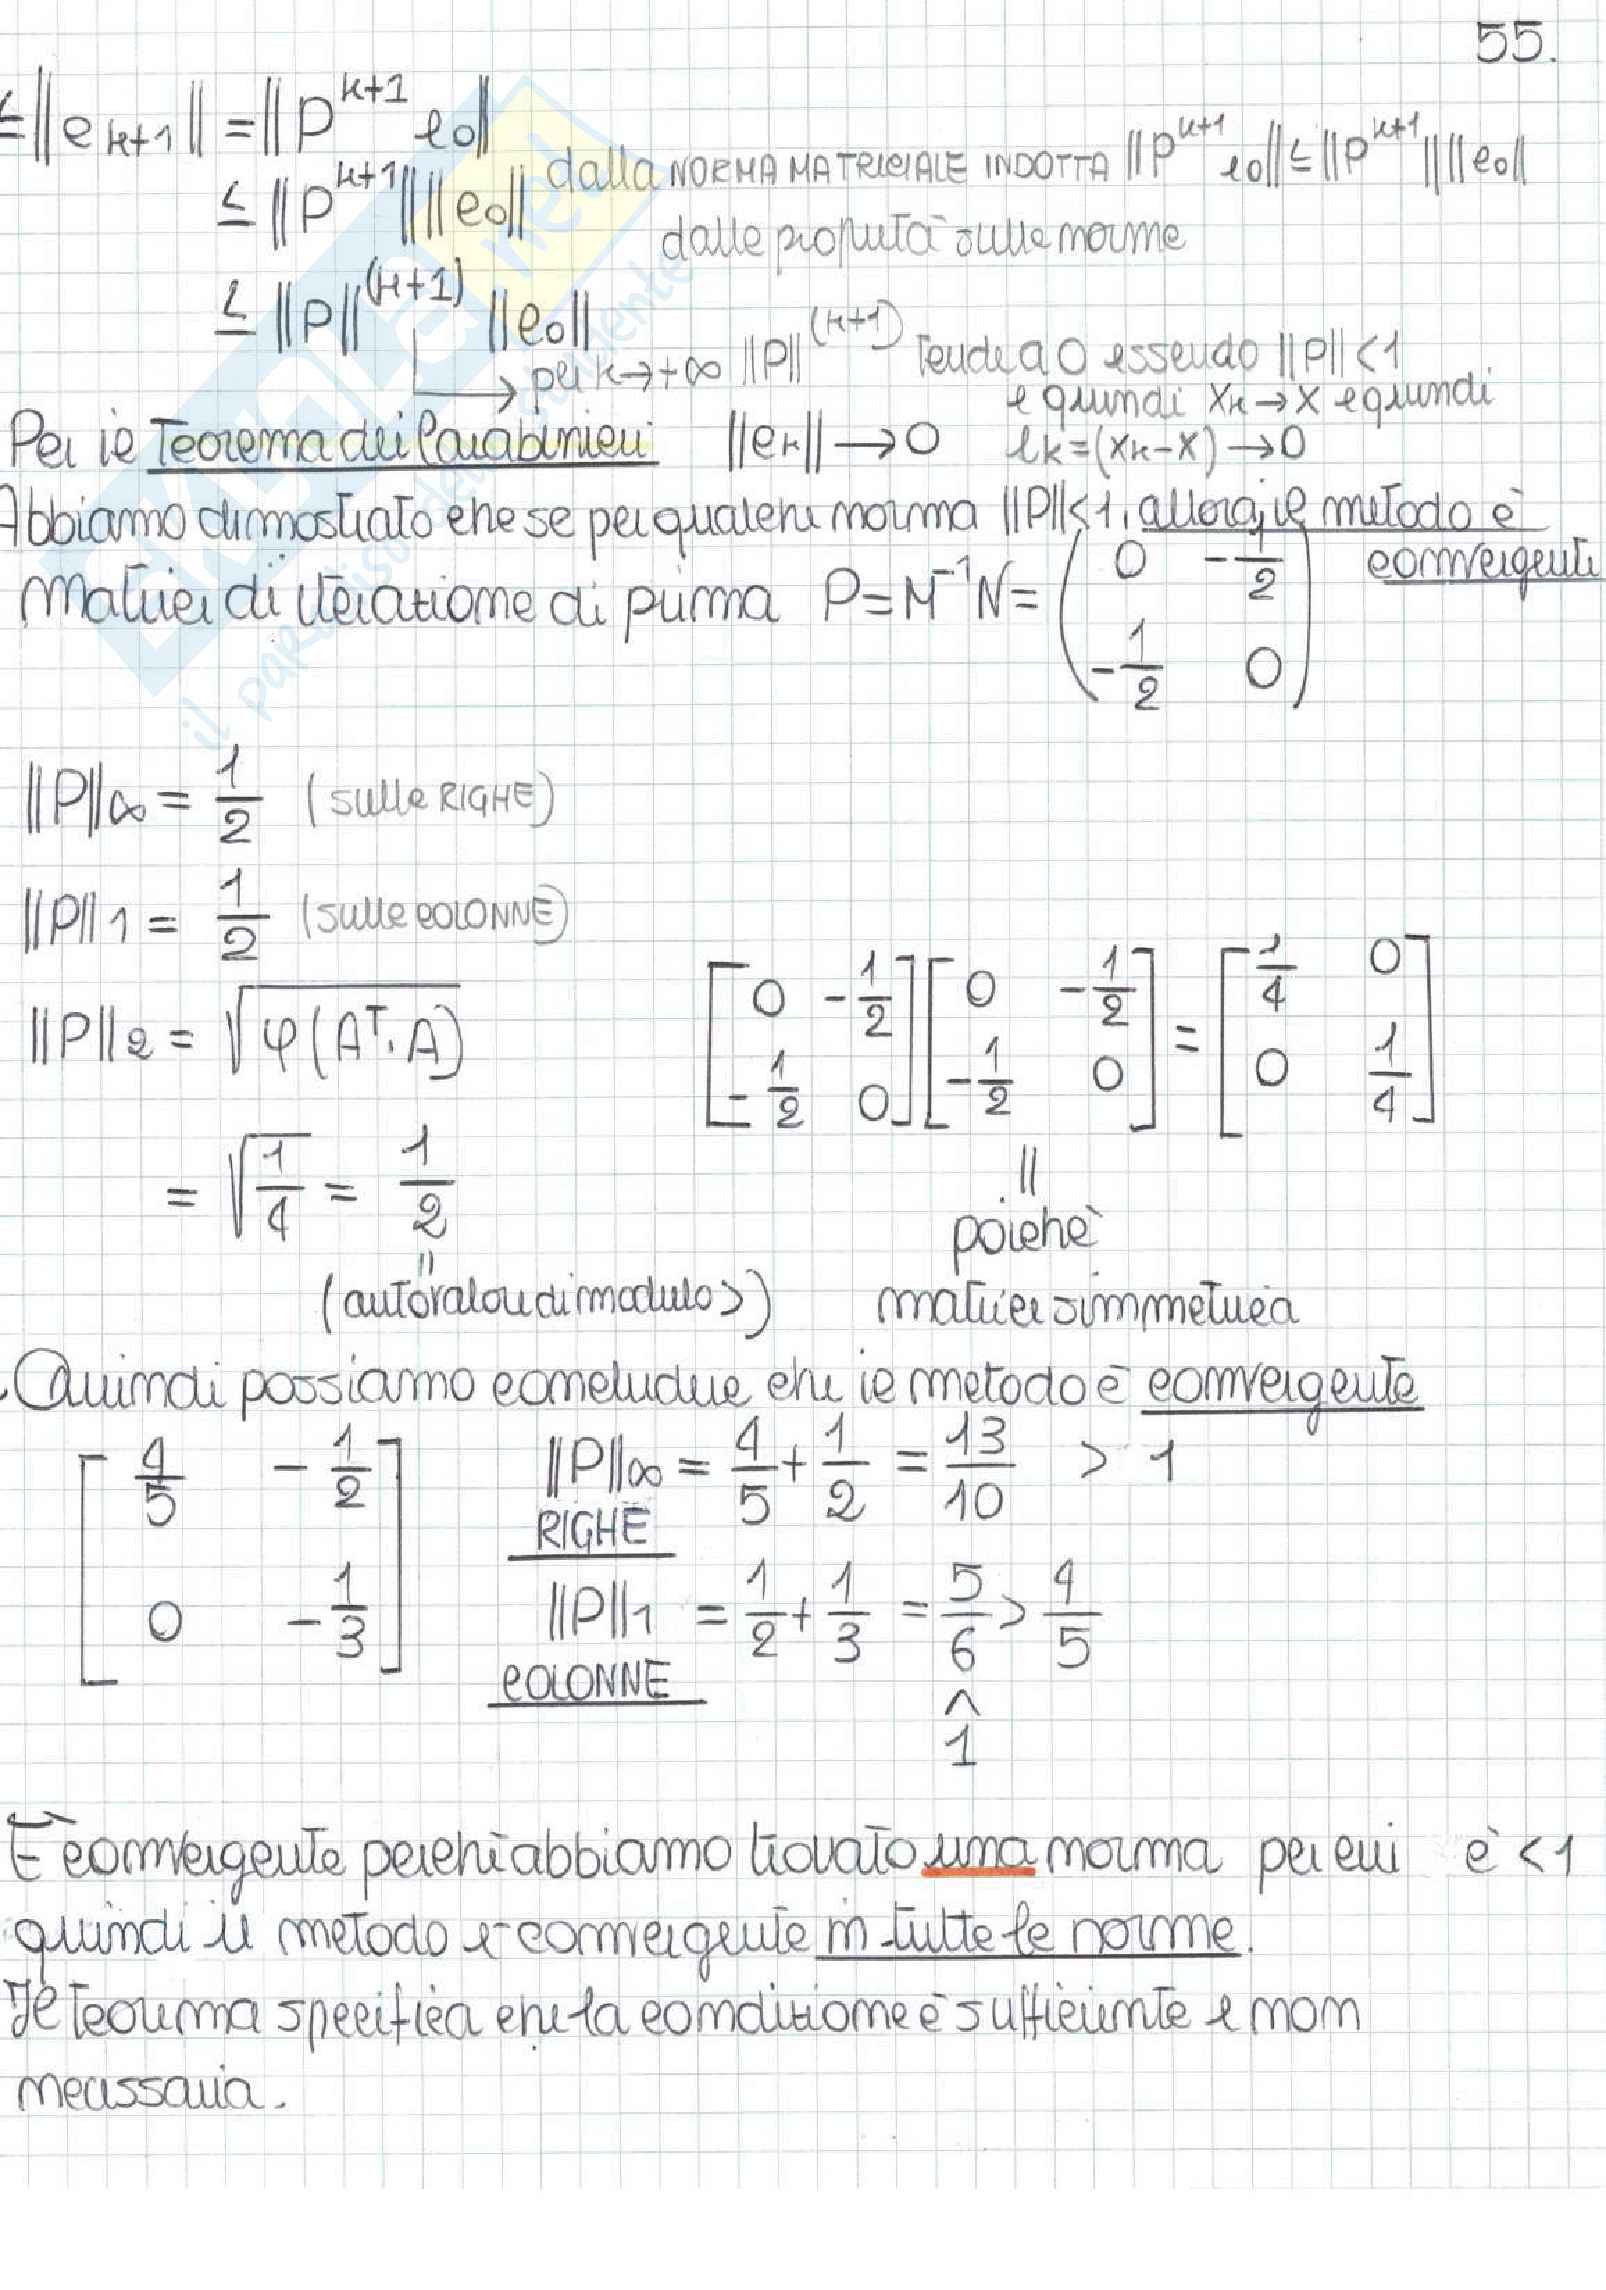 55.
≤ ||e_{k+1}|| = ||P^{k+1} e_0||
≤ ||P^{k+1}|| ||e_0|| dalla NORMA MATRICIALE INDOTTA ||P^{k+1} e_0|| ≤ ||P^{k+1}|| ||e_0||
dalle proprietà sulle norme
≤ ||P||^{(k+1)} ||e_0||
per k→+∞ ||P||^{(k+1)} tende a 0 essendo ||P|| < 1
e quindi x_k → x e quindi
Per il Teorema dei Carabinieri ||e_k|| → 0 e_k = (x_k - x) → 0
Abbiamo dimostrato che se per qualche norma ||P|| < 1, allora, il metodo è
convergente
Matrice di iterazione di prima P = M^{-1}N = ( 0 -1/2
-1/2 0 )
||P||∞ = 1/2 (sulle RIGHE)
||P||1 = 1/2 (sulle COLONNE)
||P||2 = √φ(A^T·A) [ 0 -1/2 ; -1/2 0 ] [ 0 -1/2 ; -1/2 0 ] = [ 1/4 0 ; 0 1/4 ]
= √1/4 = 1/2
"
(autovalore di modulo >)
||
poichè
matrice simmetrica
Quindi possiamo concludere che il metodo è convergente
[ 4/5 -1/2 ; 0 -1/3 ]
||P||∞ = 4/5 + 1/2 = 13/10 > 1
RIGHE
||P||1 = 1/2 + 1/3 = 5/6 > 4/5
COLONNE
^
1
È convergente perchè abbiamo trovato una norma per cui è < 1
quindi il metodo è convergente in tutte le norme.
Il teorema specifica che la condizione è sufficiente e non
necessaria.
skuola.net
il paradiso dello studente